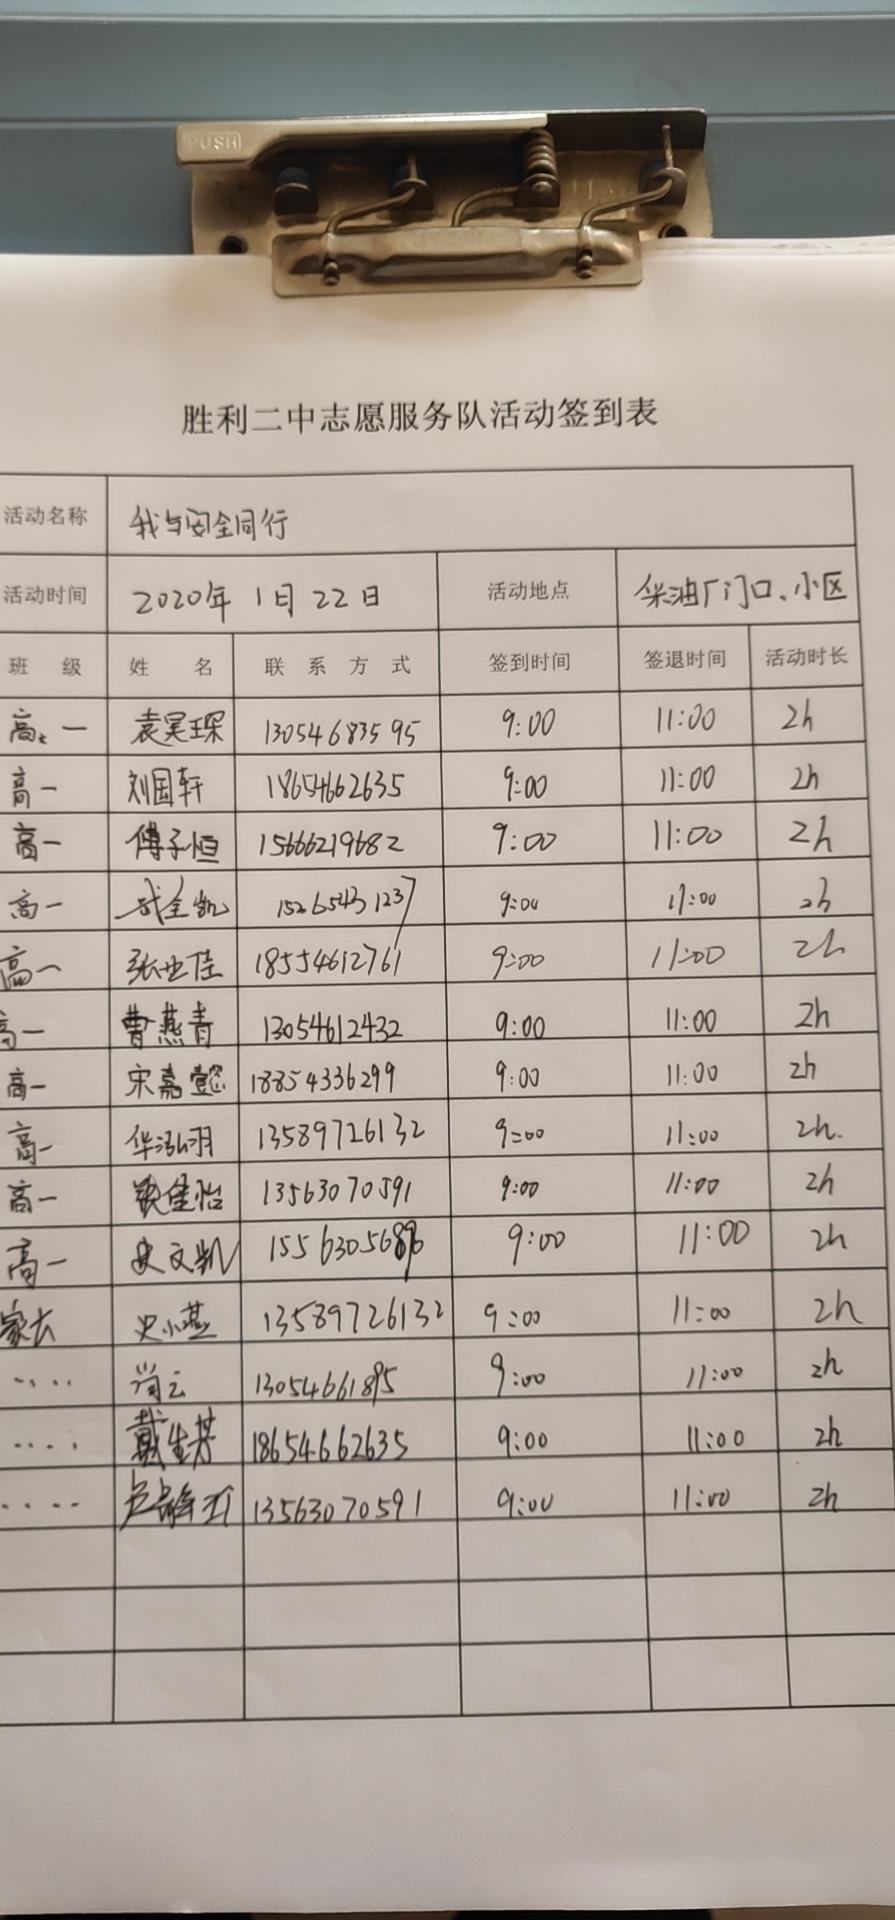 PUSH
胜利二中志愿服务队活动签到表
活动名称 我与安全同行
活动时间 2020年1月22日 活动地点 柴油厂门口、小区
班 级 姓 名 联 系 方 式 签到时间 签退时间 活动时长
高一 袁昊琛 13054683595 9:00 11:00 2h
高一 刘国轩 18654662635 9:00 11:00 2h
高一 傅子恒 15666219682 9:00 11:00 2h
高一 15265431237 9:00 11:00 2h
高一 张世佳 18554612761 9:00 11:00 2h
高一 曹燕青 13054612432 9:00 11:00 2h
高一 宋嘉懿 18854336299 9:00 11:00 2h
高一 华泓羽 13589726132 9:00 11:00 2h.
高一 13563070591 9:00 11:00 2h
高一 史文凯 9:00 11:00 2h
家长 史小燕 13589726132 9:00 11:00 2h
.... 尚云 13054661895 9:00 11:00 2h
.... 戴生芳 18654662635 9:00 11:00 2h
.... 13563070591 9:00 11:00 2h